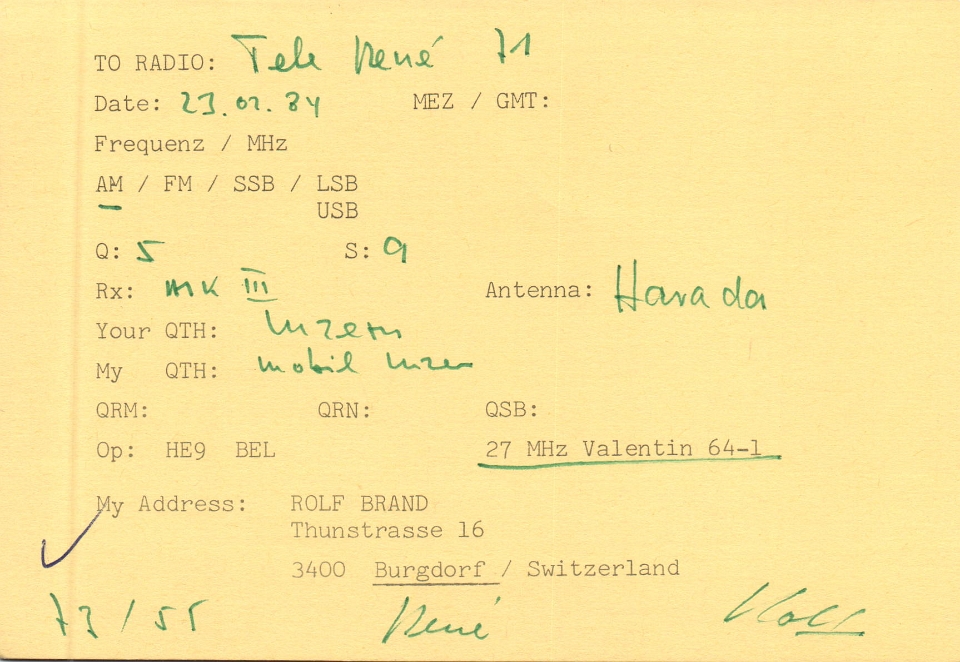 TO RADIO: Tele René 71
Date: 23.02.84 MEZ / GMT:
Frequenz / MHz
AM / FM / SSB / LSB
USB
Q: 5 S: 9
Rx: MK III Antenna: Harada
Your QTH: Luzern
My QTH: mobil Luzern
QRM: QRN: QSB:
Op: HE9 BEL 27 MHz Valentin 64-1
My Address: ROLF BRAND
Thunstrasse 16
3400 Burgdorf / Switzerland
73 / 55 René Rolf